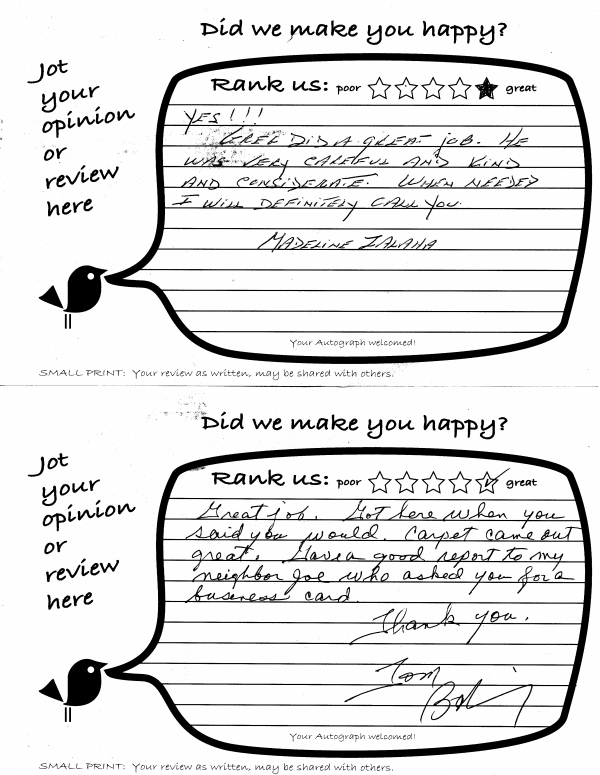 Did we make you happy?
Jot
your
opinion
or
review
here
Rank us: poor great
YES!!!
GREG DID A GREAT JOB. HE
WAS VERY CAREFUL AND KIND
AND CONSIDERATE. WHEN NEEDED
I WILL DEFINITELY CALL YOU.
MADELINE
Your Autograph welcomed!
SMALL PRINT: Your review as written, may be shared with others.
Did we make you happy?
Jot
your
opinion
or
review
here
Rank us: poor great
Great job. Got here when you
said you would. Carpet came out
great. Gave a good report to my
neighbor Joe who asked you for a
business card.
Thank you.
Tom
Your Autograph welcomed!
SMALL PRINT: Your review as written, may be shared with others.